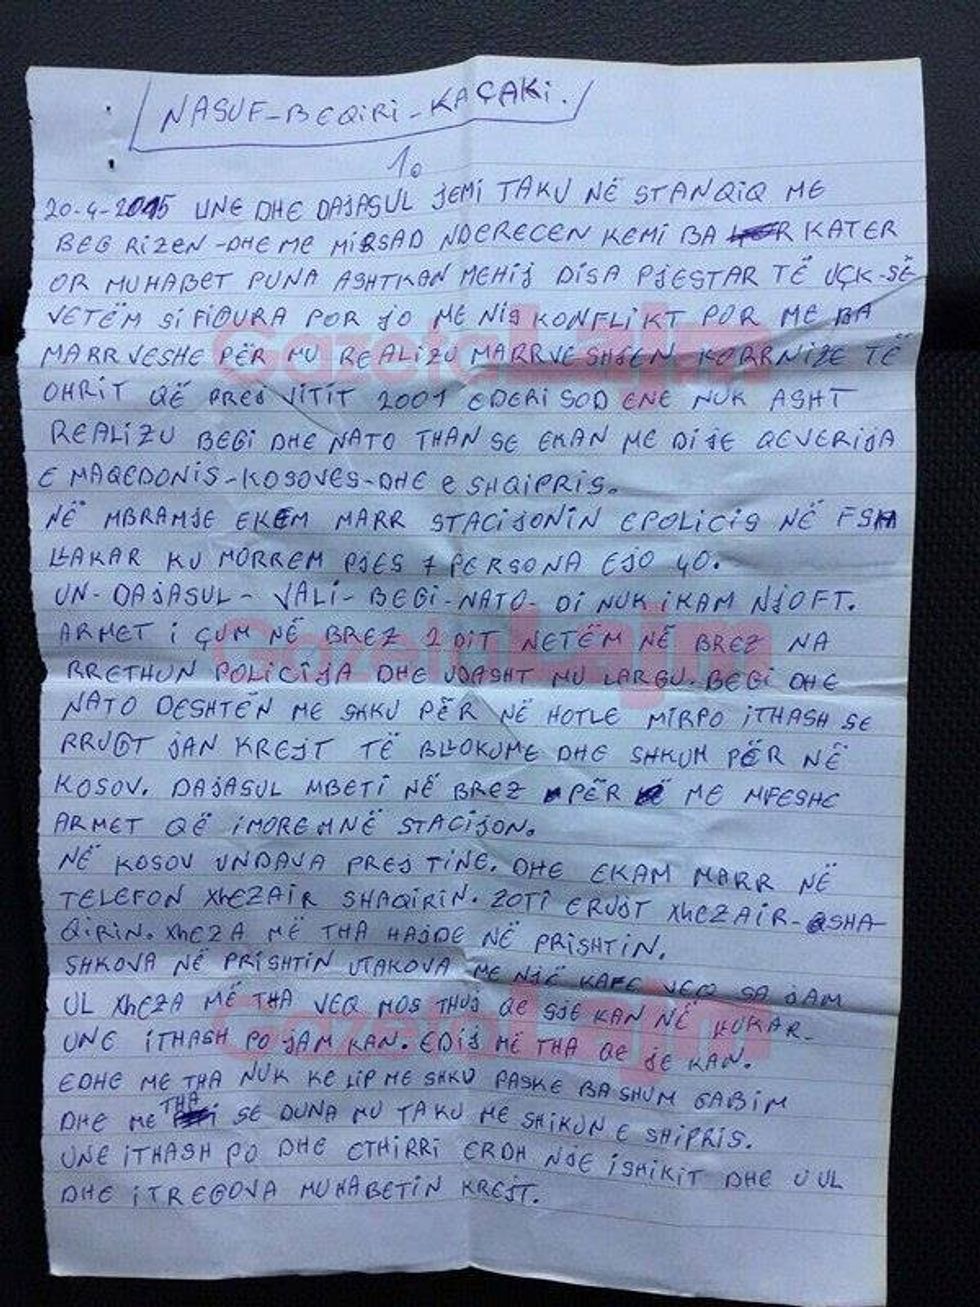 NASUF-BEQIRI-KAÇAKI.
1.
20-4-2015 UNE DHE DAJASUL JEMI TAKU NË STANQIQ ME
BEG RIZEN-DHE ME MIRSAD NDERECEN KEMI BA KATER
OR MUHABET PUNA ASHTKAN MEHIJ DISA PJESTAR TË UÇK-SË
VETËM SI FIGURA POR JO ME NIS KONFLIKT POR ME BA
MARRVESHE PËR MU REALIZU MARRVESHJEN KORRNIZE TË
OHRIT QË PREJ VITIT 2001 EDERI SOD ENE NUK ASHT
REALIZU BEGI DHE NATO THAN SE EKAN ME DIJE QEVERIJA
E MAQEDONIS-KOSOVES-DHE E SHQIPRIS.
NË MBRAMJE EKEM MARR STACIJONIN EPOLICIS NË FSH
LLAKAR KU MORREM PJES 7 PERSONA EJO 40.
UN-DAJASUL-VALI-BEGI-NATO-DI NUK IKAM NJOFT.
ARMET I ÇUM NË BREZ 2 DIT NETËM NË BREZ NA
RRETHUN POLICIJA DHE UDASHT MU LARGU. BEGI DHE
NATO DESHTËN ME SHKU PËR NË HOTLE MIRPO ITHASH SE
RRUGT JAN KREJT TË BLLOKUME DHE SHKUM PËR NË
KOSOV. DAJASUL MBETI NË BREZ PËR ME MFESHE
ARMET QË IMOREMNË STACIJON.
NË KOSOV UNDAVA PREJ TINE. DHE EKAM MARR NË
TELEFON XHEZAIR SHAQIRIN. ZOTI ERUJT XHEZAIR-SHA-
QIRIN. XHEZA MË THA HAJDE NË PRISHTIN.
SHKOVA NË PRISHTIN UTAKOVA ME NJË KAFE VEQ SA JAM
UL XHEZA MË THA VEQ MOS THUJ QE SJE KAN NË KUKAR-
UNE ITHASH PO JAM KAN. EDIJ MË THA QE JE KAN.
EDHE ME THA NUK KE LIP ME SHKU PASKE BA SHUM GABIM
DHE ME THA SE DUNA MU TAKU ME SHIKUN E SHIPRIS.
UNE ITHASH PO DHE ETHIRRI ERDH NJE ISHIKIT DHE U UL
DHE ITREGOVA MUHABETIN KREJT.
GazetaLajm
GazetaLajm
GazetaLajm